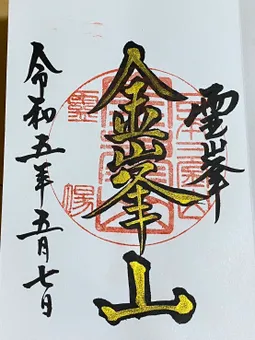 霊峯
金峯山
令和五年五月七日
霊場